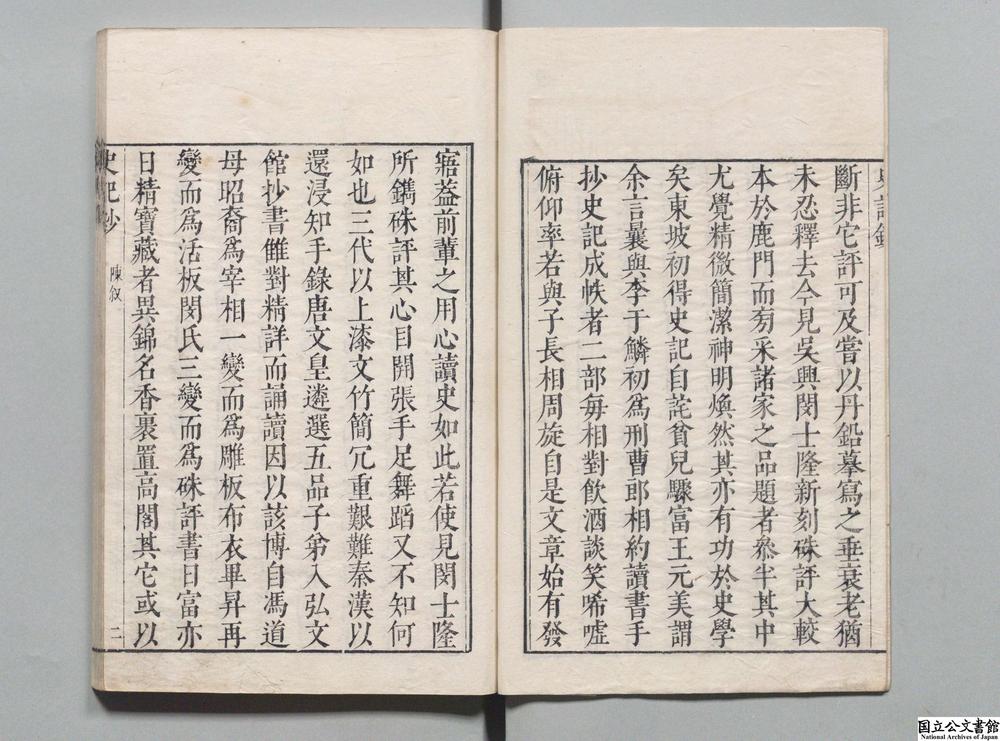 斷非它評可及嘗以丹鉛摹寫之垂衰老猶
未忍釋去今見吳興閔士隆新刻硃評大較
本於鹿門而旁采諸家之品題者叅半其中
尤覺精微簡潔神明煥然其亦有功於史學
矣東坡初得史記自詫貧兒驟富王元美謂
余言曩與李于鱗初爲刑曹郎相約讀書手
抄史記成帙者二部每相對飲酒談笑唏噓
俯仰率若與子長相周旋自是文章始有發
寤益前輩之用心讀史如此若使見閔士隆
所鐫硃評其心目開張手足舞蹈又不知何
如也三代以上漆文竹簡冗重艱難秦漢以
還浸知手錄唐文皇遴選五品子弟入弘文
館抄書雠對精詳而誦讀因以該博自馮道
毋昭裔爲宰相一變而爲雕板布衣畢昇再
變而爲活板閔氏三變而爲硃評書日富亦
日精寶藏者異錦名香裹置高閣其它或以
史記抄
陳叙
二
国立公文書館
National Archives of Japan